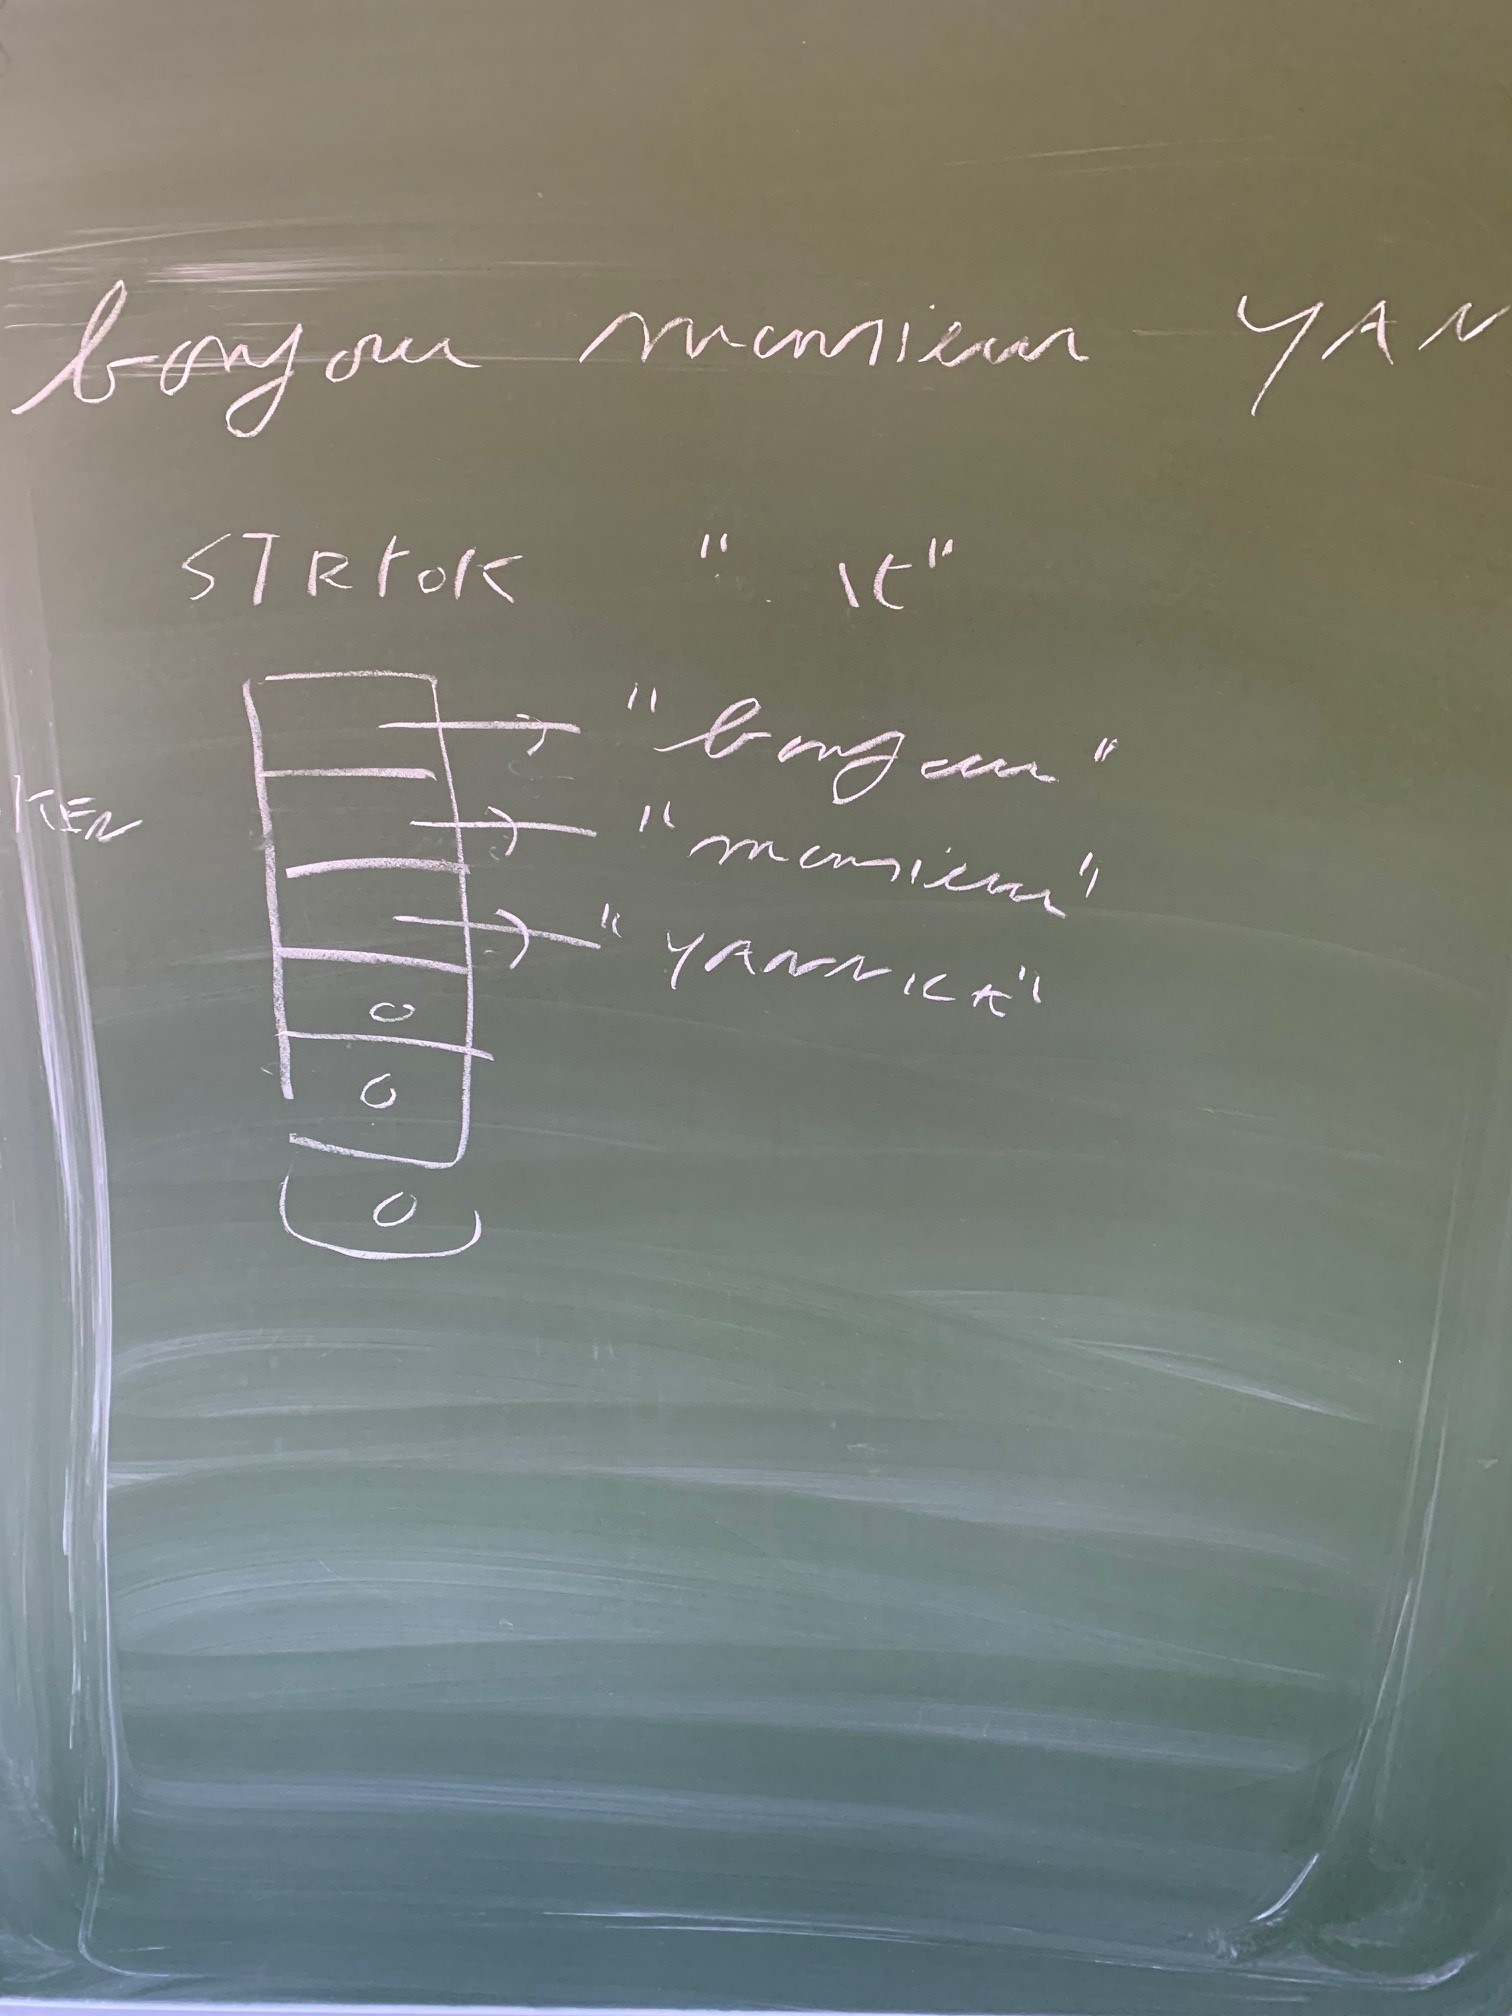 bonjour monsieur YAN
STRtOK " \t"
"bonjour"
KEN
"monsieur"
"YANNICK"
0
0
0